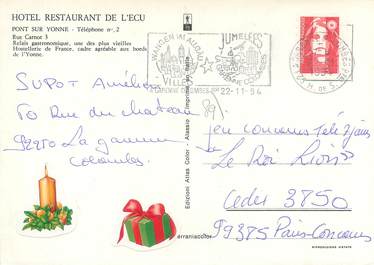 HOTEL RESTAURANT DE L'ECU
PONT SUR YONNE - Téléphone n°. 2
Rue Carnot 3
Relais gastronomique, une des plus vieilles
Hostellerie de France, cadre agréable aux bords
de l'Yonne.
WANGEN IM ALLGÄU
JUMELÉES
VILLES
LA GARENNE COLOMBES
22-11-94
SUPOT Amélie
50 Rue du chateau
92250 La garenne
colombes
jeu concours Télé 7 jours
"Le Roi Lion"
Cedex 3750
99375 Paris-Concours
Edizioni Atlas Color - Alassio
erraniacolor
RIPRODUZIONE VIETATA